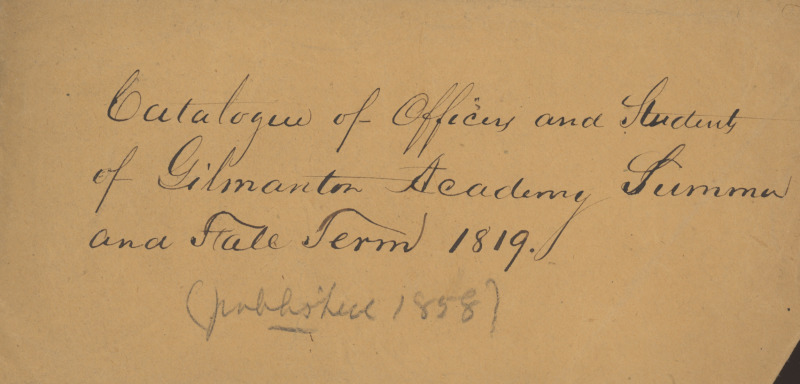 Catalogue of Officers and Students
of Gilmanton Academy Summer
and Fall Term 1819.
(published 1858)